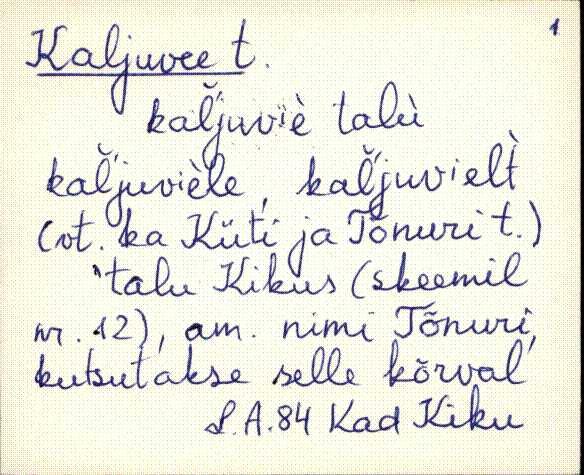 1
Kaljuvee t.
kaľjuviè talù
kaľjuvièle, kaľjuvielt̀
(vt. ka Küti ja Tõnuri t.)
talu Kikus (skeemil
nr. 12), am. nimi Tõnuri,
kutsutakse selle kõrval
L.A.84 Kad Kiku